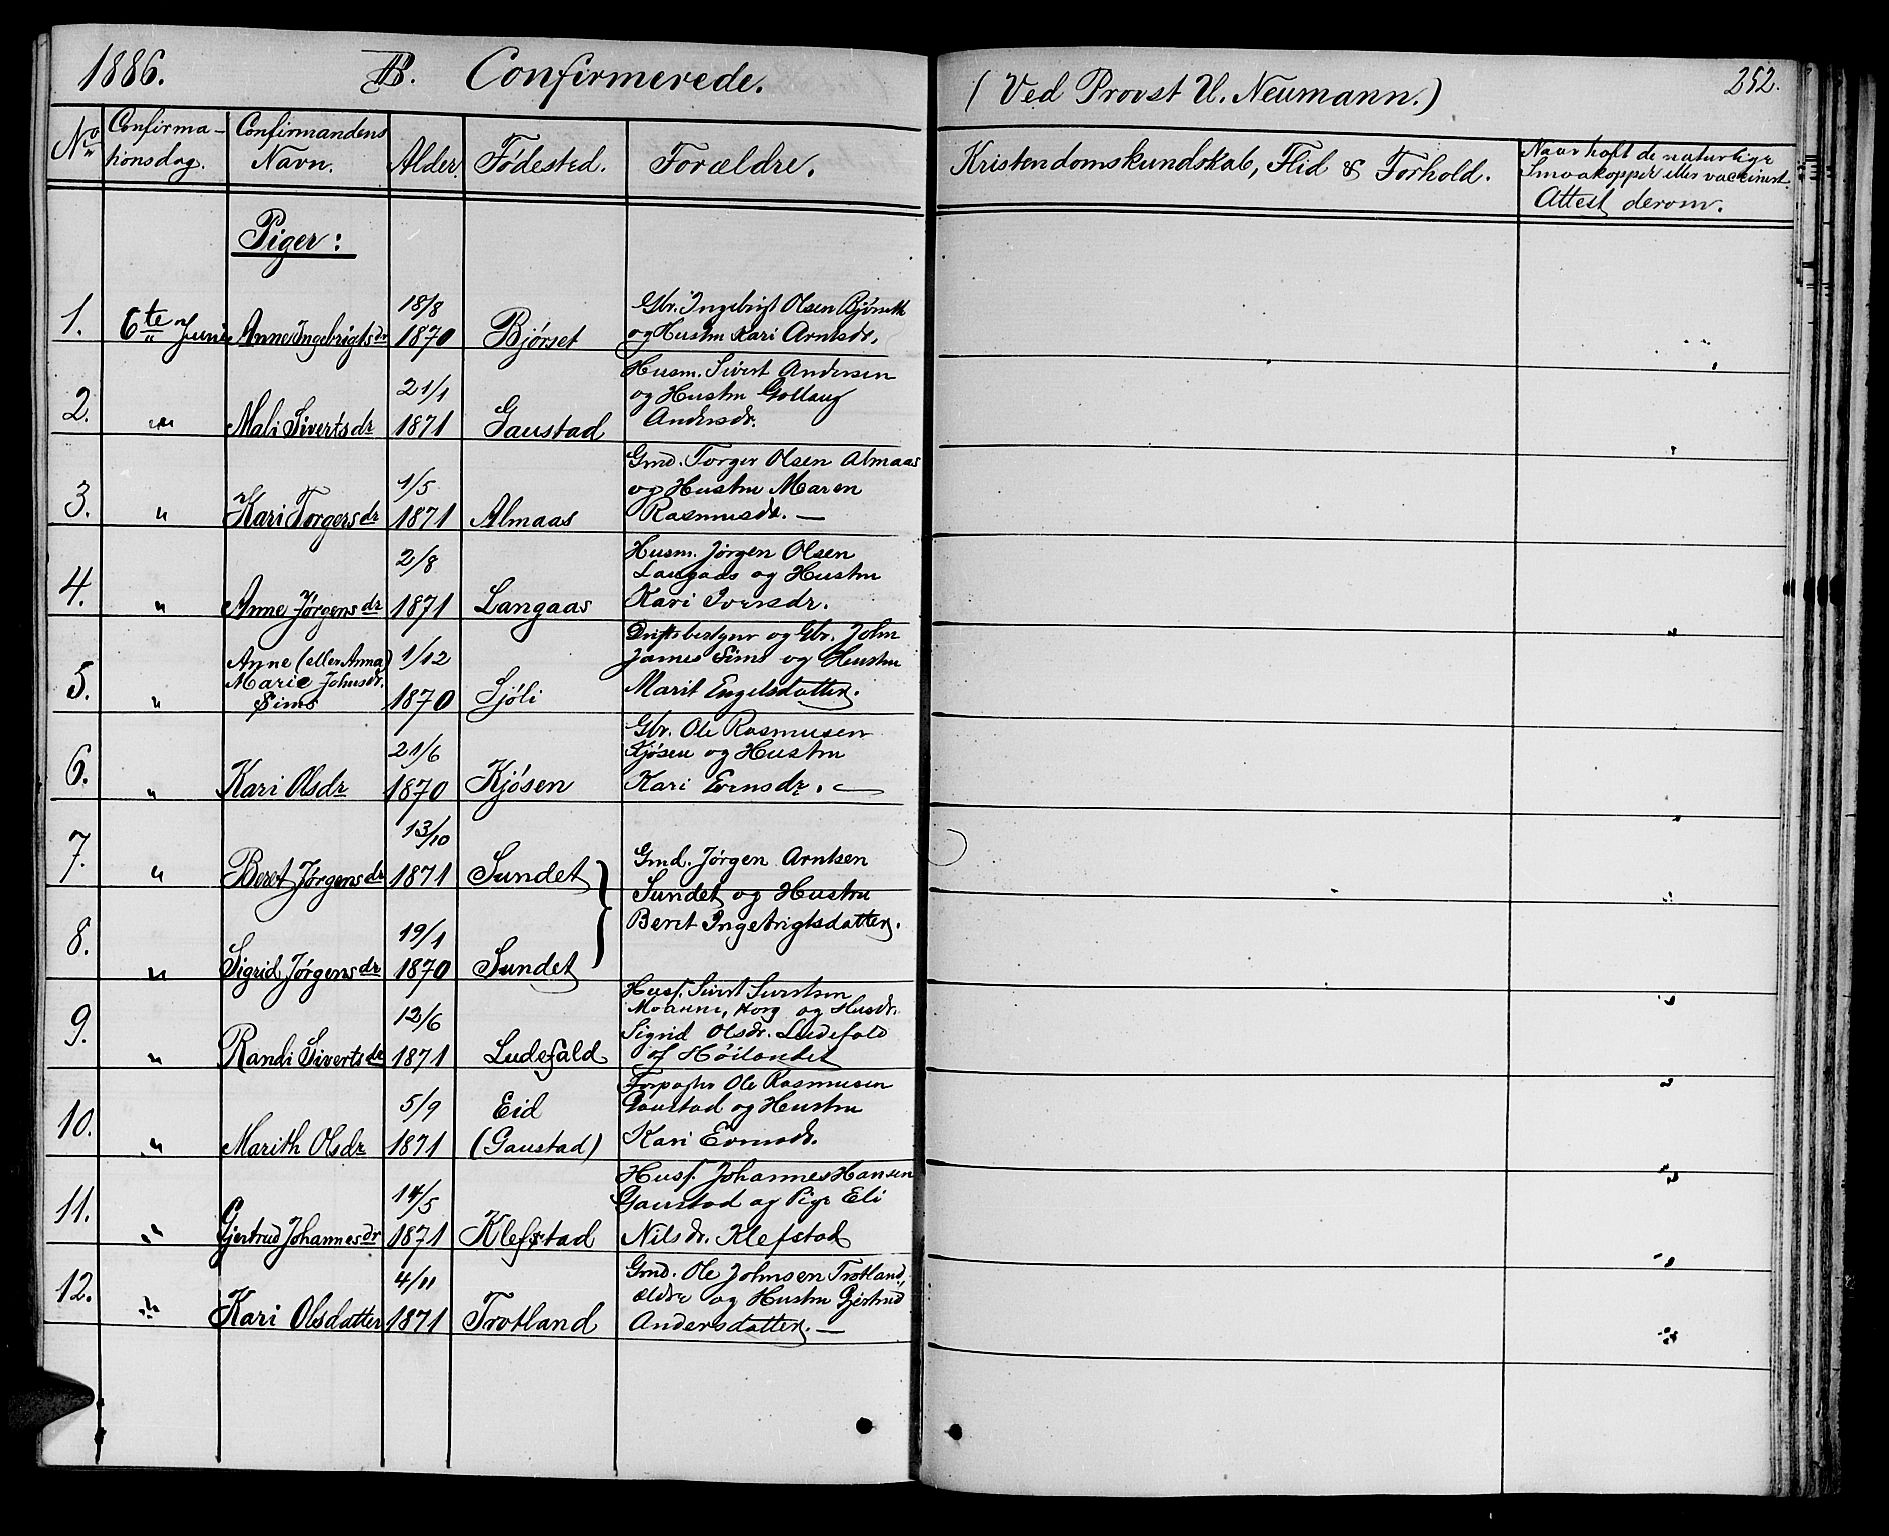 1886. B. Confirmerede. (Ved Provst U. Neumann.) 252.
No Confirmationsdag. Confirmandens Navn. Alder. Fødested. Forældre. Kristendomskundskab, Flid & Forhold. Naar haft de naturlige
Smaakopper eller vaccineret.
Attest derom.
Piger:
1. 6te Juni Anne Ingebrigtsdr 18/8 1870 Bjørset
Gbr. Ingebrigt Olsen Bjørseth
og Hustru Kari Arntsdr.
2. " Mali Sivertsdr 21/1 1871 Gaustad
Husm. Sivert Andersen
og Hustru Gollaug
Andersdr.
3. " Kari Torgersdr 1/5 1871 Almaas
Gmd. Torger Olsen Almaas
og Hustru Maren
Rasmusdr. —
4. " Anne Jørgensdr 2/8 1871 Langaas
Husm. Jørgen Olsen
Langaas og Hustru
Kari Iversdr.
5. " Anne (eller Anna)
Marie Johnsdr.
Sims 1/12 1870 Sjøli
Driftsbestyrer og Gbr. John
James Sims og Hustru
Marit Engelsdatter.
6. " Kari Olsdr 21/6 1870 Kjøsen
Gbr. Ole Rasmusen
Kjøsen og Hustru
Kari Evensdr. —
7. " Beret Jørgensdr 13/10 1871 Sundet
Gmd. Jørgen Arntsen
Sundet og Hustru
Beret Ingebrigtsdatter.
8. " Sigrid Jørgensdr 19/1 1870 Sundet
9. " Randi Sivertsdr 12/6 1871 Ludefald
Husf. Sivert Sivertsen
Moerne, Horg og Husdr.
Sigrid Olsdr. Ludefald
af Høilandet
10. " Marith Olsdr 5/9 1871 Eid
(Gaustad)
Forpagter Ole Rasmusen
Gaustad og Hustru
Kari Evensdr.
11. " Gjertrud Johannesdr 14/5 1871 Klefstad
Husf. Johannes Hansen
Gaustad og Pige Eli
Nilsdr. Klefstad
12. " Kari Olsdatter 4/11 1871 Trotland
Gmd. Ole Johnsen Trotland,
ældre og Hustru Gjertrud
Andersdatter. —